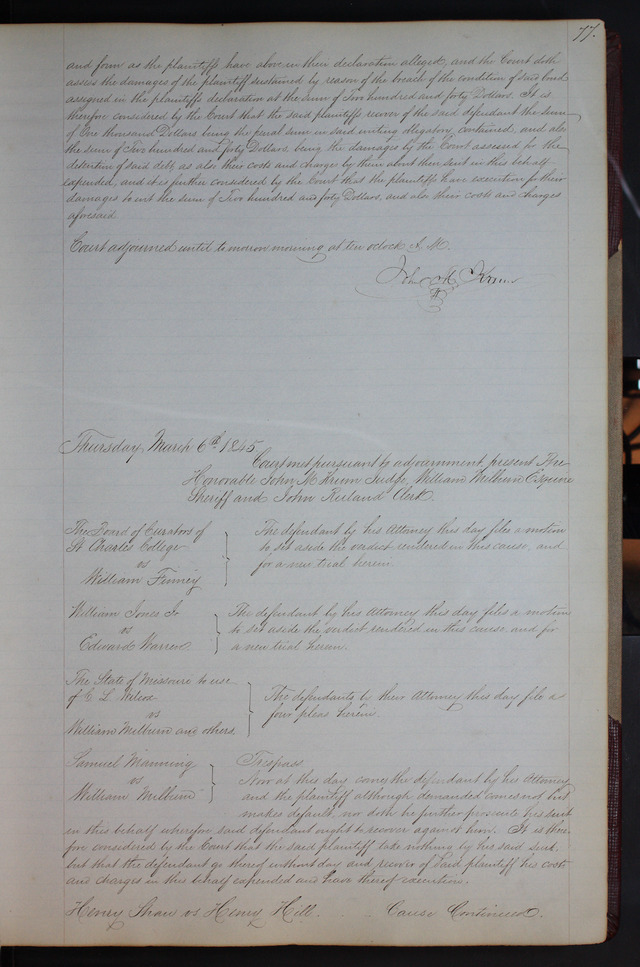 77.
and form as the plaintiffs have above in their declaration alleged, and the Court doth
assess the damages of the plaintiff sustained by reason of the breach of the condition of said bond
assigned in the plaintiffs declaration at the sum of Two hundred and forty Dollars. It is
therefore considered by the Court that the said plaintiffs recover of the said defendant the sum
of One thousand Dollars being the penal sum in said writing obligatory contained, and also
the sum of Two hundred and forty Dollars being the damages by the Court assessed for the
detention of said debt, as also their costs and charge by them about their suit in this behalf
expended, and it is further considered by the Court that the plaintiffs have execution for their
damages to wit the sum of Two hundred and forty Dollars, and also their costs and charges
aforesaid.
Court adjourned until tomorrow morning at ten oclock A. M.
John M. Krum
Thursday March 6th 1845
Court met pursuant to adjournment, present the
Honorable John M Krum Judge, William Milburn Esquire
Sheriff and John Ruland Clerk.
The Board of Curators of
St Charles College
vs
William Finney
The defendant by his Attorney this day files a motion
to set aside the verdict rendered in this cause, and
for a new trial herein.
William Jones Jr
vs
Edward Warren
The defendant by his Attorney this day files a motion
to set aside the verdict rendered in this cause and for
a new trial herein.
The State of Missouri to use
of C L Wilcox
vs
William Milburn and others.
The defendants by their Attorney this day file as
four pleas herein.
Samuel Manning
vs
William Milburn
Trespass.
Now at this day comes the defendant by his Attorney
and the plaintiff although demanded comes not but
makes default, nor doth he further prosecute his suit
in this behalf wherefore said defendant ought to recover against him. It is there
fore considered by the Court that the said plaintiff take nothing by his said suit,
but that the defendant go thereof without day and recover of said plaintiff his costs
and charges in this behalf expended and have thereof execution.
Henry Shaw vs Henry Hill. Cause Continued.